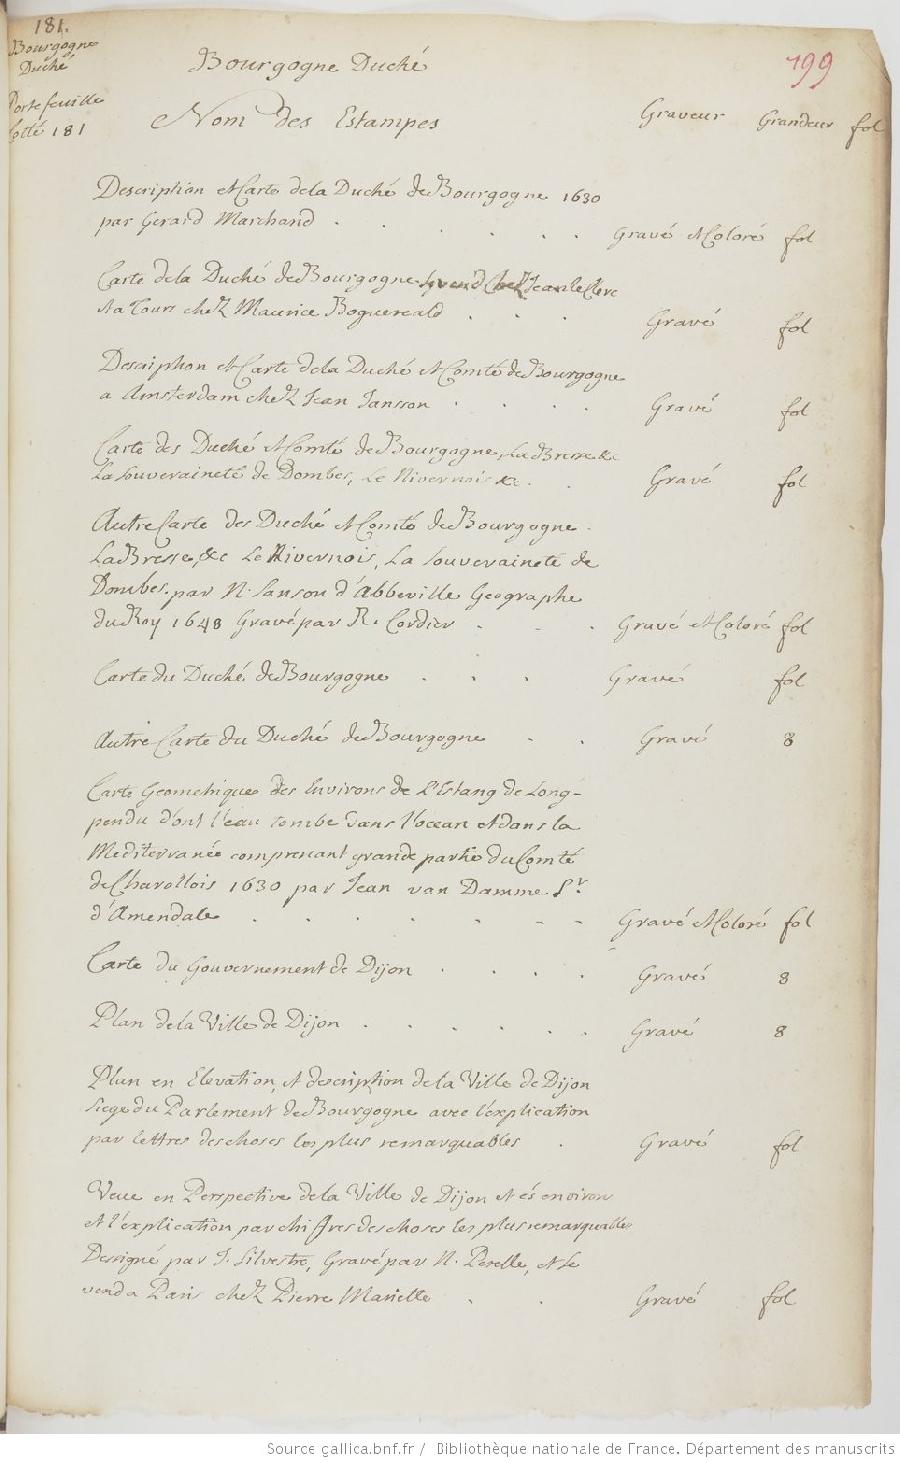 181.
Bourgogne
Duché
Portefeuille
Cotté 181
Bourgogne Duché
199
Nom des Estampes Graveur Grandeur fol
Description et Carte de la Duché de Bourgogne 1630
par Gerard Marchand . . . . . . Gravé et Coloré fol
Carte de la Duché de Bourgogne se vend Chez Jean le Clerc
et a Tours chez Maurice Boguereald . . . Gravé fol
Description et Carte de la Duché et Comté de Bourgogne
a Amsterdam chez Jean Jansson . . . . Gravé fol
Carte des Duché et Comté de Bourgogne, La Bresse &c
La Souveraineté de Dombes, Le Nivernois &c . . Gravé fol
Autre Carte des Duché et Comté de Bourgogne
La Bresse, &c Le Nivernois, La Souveraineté de
Dombes. par N. Sanson d'Abbeville Geographe
du Roy 1648 Gravé par R. Cordier . . . Gravé et Coloré fol
Carte du Duché de Bourgogne . . . Gravé fol
Autre Carte du Duché de Bourgogne . . Gravé 8
Carte Geometrique des Environs de l'Estang de Long-
pendu d'ont l'eau tombe dans l'ocean et dans la
Mediterranée comprenant grande partie du Comté
de Charollois 1630 par Jean van Damme Sr.
d'Amendale . . . . . . . Gravé et Coloré fol
Carte du Gouvernement de Dijon . . . . Gravé 8
Plan de la Ville de Dijon . . . . . . Gravé 8
Plan en Elevation, et description de la Ville de Dijon
Siege du Parlement de Bourgogne avec l'explication
par lettres des choses les plus remarquables . Gravé fol
Veue en Perspective de la Ville de Dijon et és environs
et l'explication par chiffres des choses les plus remarquables
Dessigné par J. Silvestre, Gravé par N. Perelle, et se
vend a Paris chez Pierre Mariette . . Gravé fol
Source gallica.bnf.fr / Bibliothèque nationale de France. Département des manuscrits